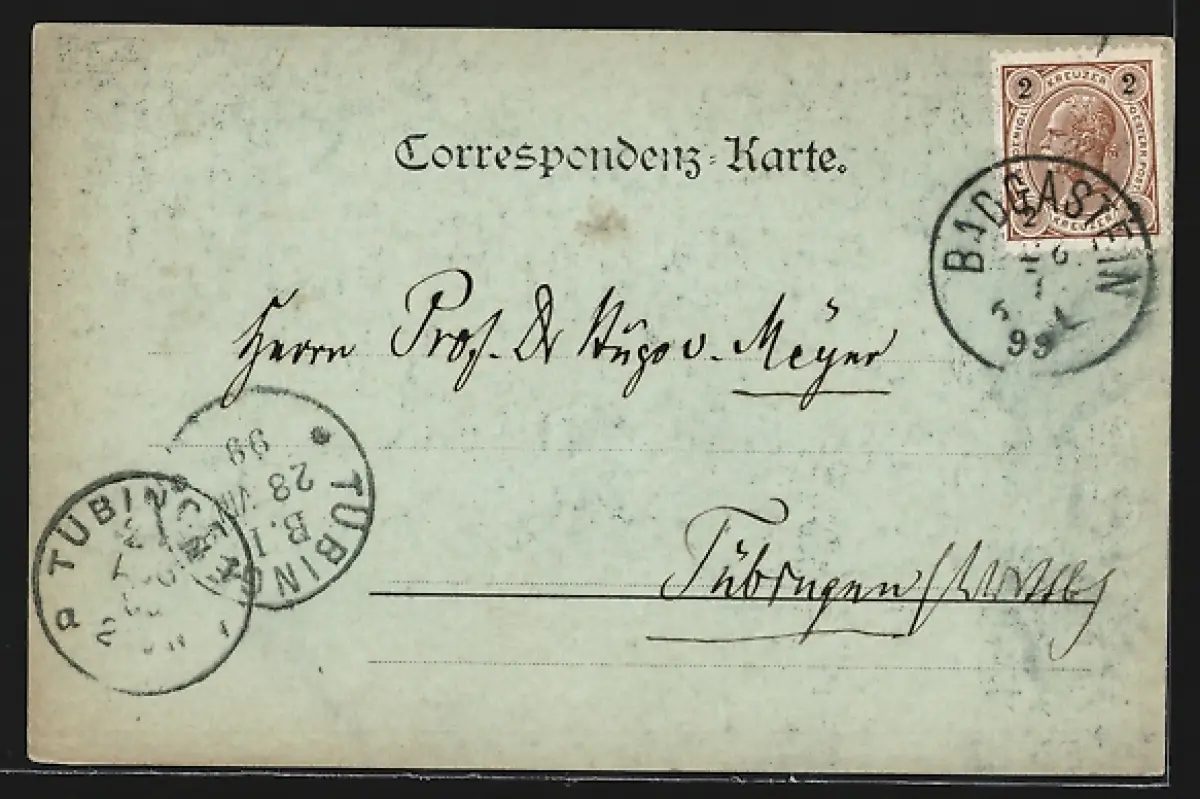 2 KREUZER 2
Correspondenz-Karte.
BADGASTEIN
99
Herrn Prof. Dr Hugo v. Meyer
* TÜBINGEN
99
28 VII
B. I
TÜBINGEN
Tübingen